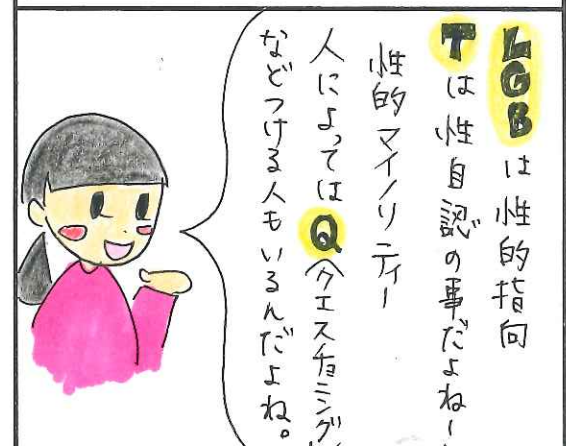 LGBは性的指向
Tは性自認の事だよねー
性的マイノリティー
人によってはQ(クエスチョミング)
などつける人もいるんだよね。